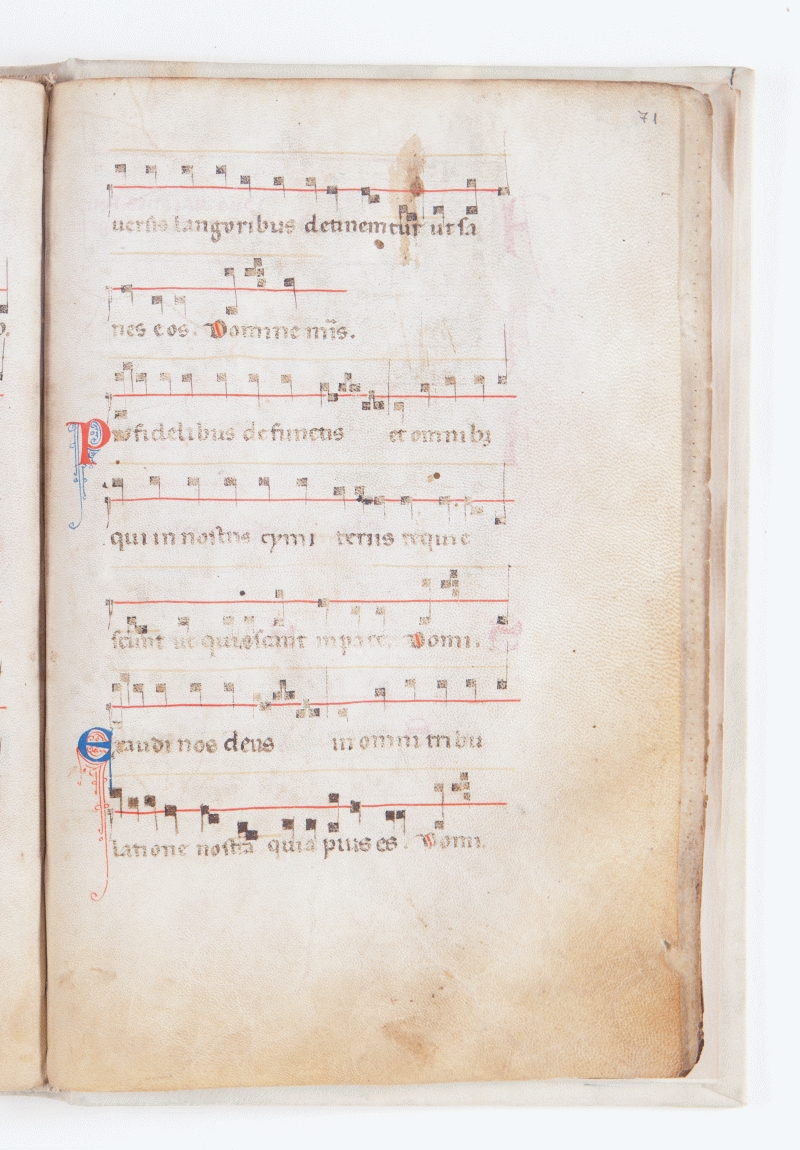 71
uersis langoribus detinentur ut sa
nes eos. Domine mis.
Pro fidelibus defunctis et omnibꝫ
qui in nostris cymi teriis requie
scunt ut quiescant in pace. Domi.
Exaudi nos deus in omni tribu
latione nostra quia pius es. Domi.